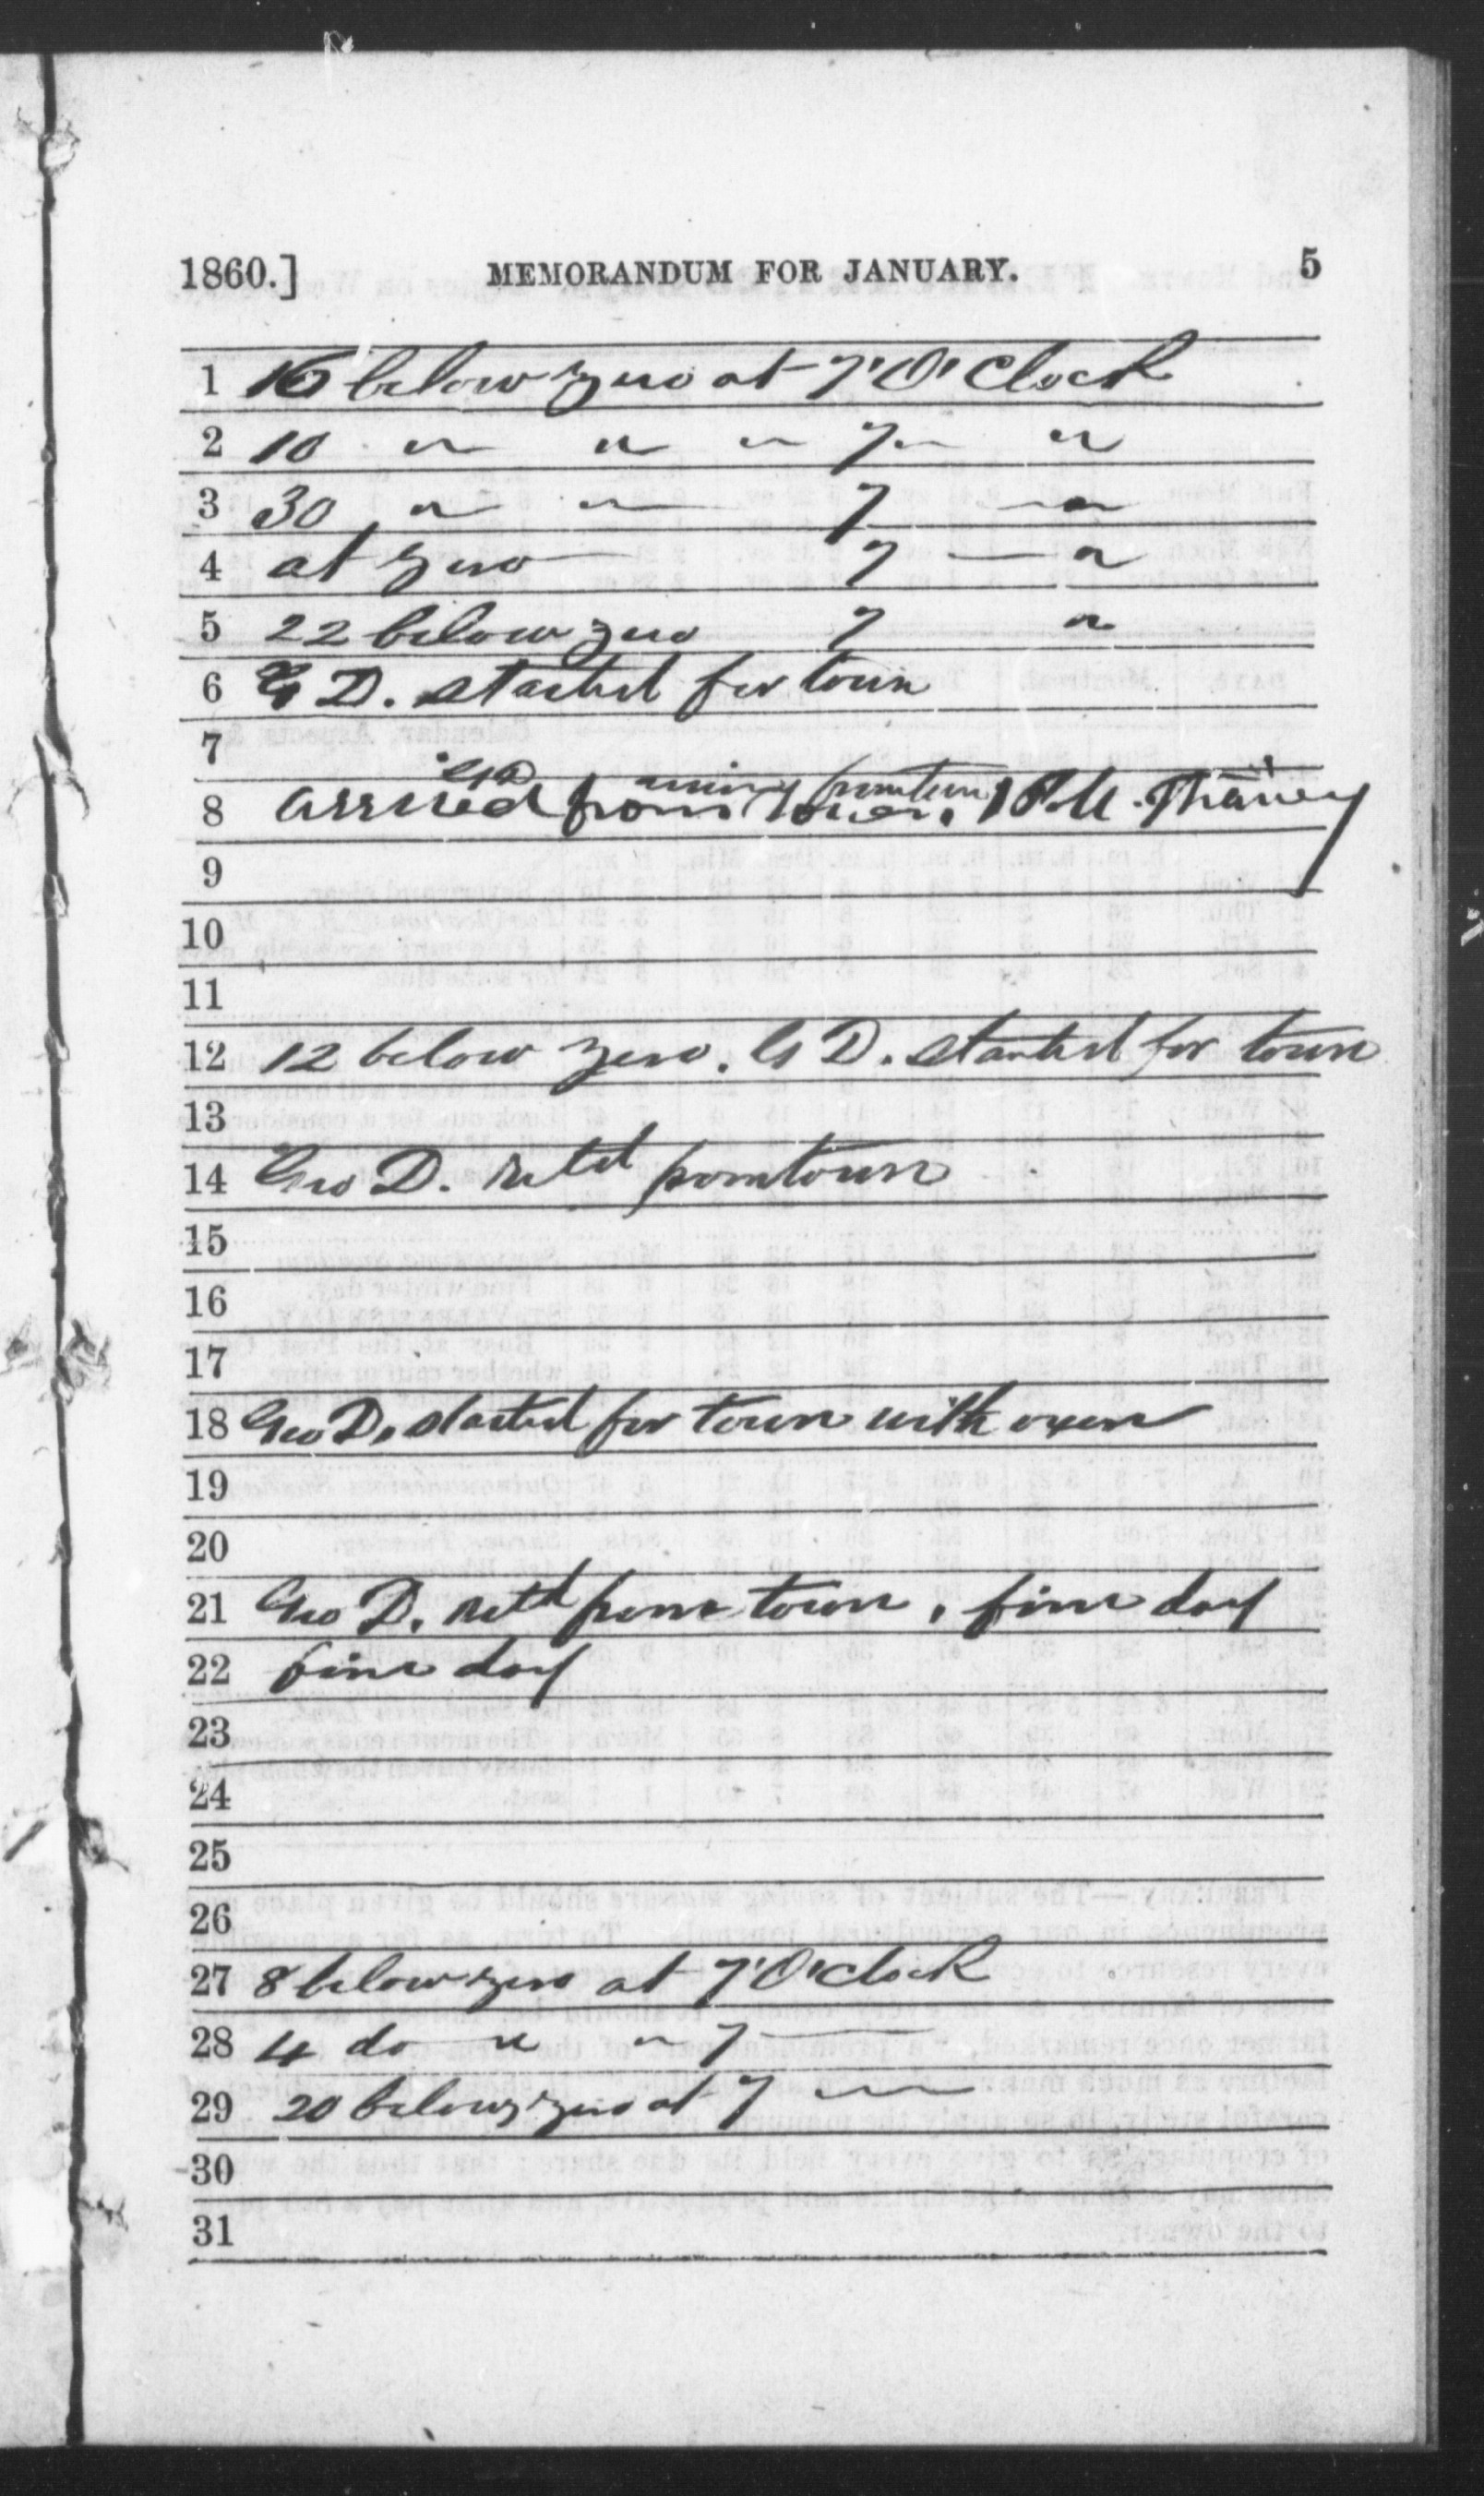 1860.] MEMORANDUM FOR JANUARY. 5
1 16 below zero at 7'O'Clock
2 10 " " " 7 "
3 30 " " 7 "
4 at zero 7 "
5 22 below zero 7 "
6 G D. started for town
7
G D
8 arrived from Town. 1 P.M. Thawey
9
10
11
12 12 below zero. G D. started for town
13
14 Geo D. retd from town
15
16
17
18 Geo D. started for town with oxen
19
20
21 Geo D. retd from town, fine day
22 fine day
23
24
25
26
27 8 below zero at 7'O'clock
28 4 do " " 7
29 20 below zero at 7 "
30
31